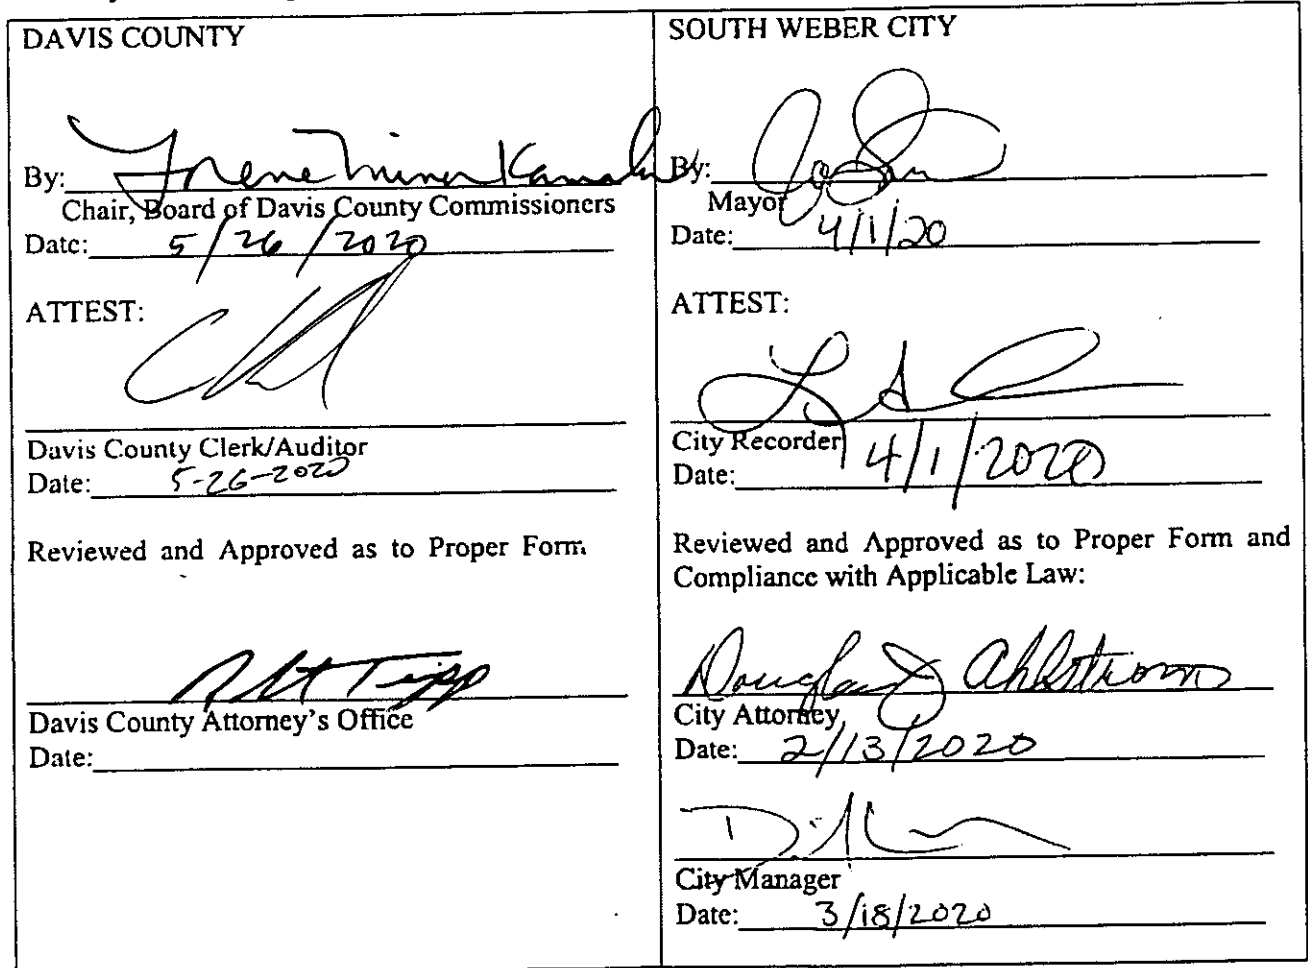 DAVIS COUNTY
By:
Chair, Board of Davis County Commissioners
Date: 5/26/2020
ATTEST:
Davis County Clerk/Auditor
Date: 5-26-2020
Reviewed and Approved as to Proper Form
Davis County Attorney's Office
Date:
SOUTH WEBER CITY
By:
Mayor
Date: 4/1/20
ATTEST:
City Recorder
Date: 4/1/2020
Reviewed and Approved as to Proper Form and
Compliance with Applicable Law:
Douglas J Ahlstrom
City Attorney
Date: 2/13/2020
City Manager
Date: 3/18/2020